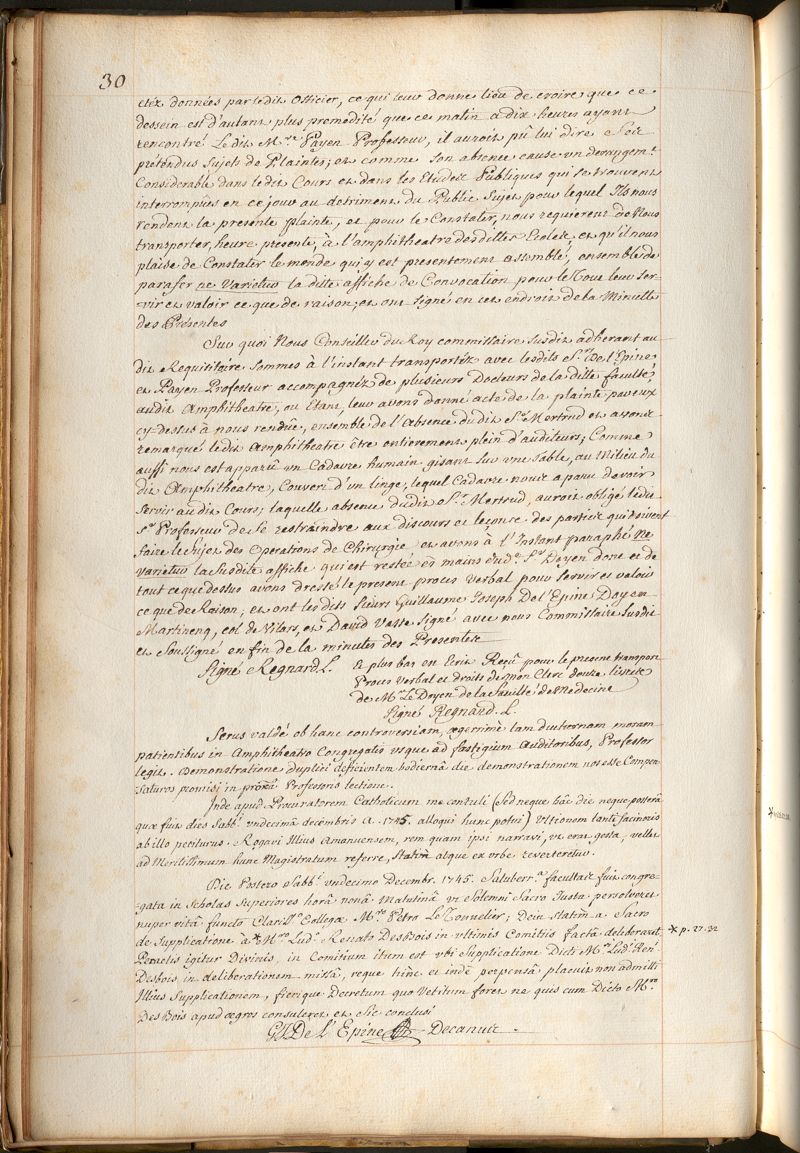 30
etéz données par ledit Officier, ce qui leur donne lieu de croire que ce
dessein est d'autant plus premedité que ce matin à dix heures ayant
rencontré Le dit M.re Payen Professeur, il auroit pû lui dire Ses
prétendus Sujets de Plaintes; et comme Son absence cause un derangem.t
Considerable dans ledit Cours et dans les Etudes Publiques qui se trouvent
interrompues en ce jour au detriment du Public Sujet pour lequel Ils nous
rendent la presente plainte, et pour le Constater, nous requièrent de Nous
transporter, heure presente, à l'amphitheatre desdittes Ecoles et qu'il nous
plaise de Constater le monde qui y est presentement assemblé, ensemble de
parafer ne varietur la ditte affiche de Convocation pour le Tout leur Ser-
vir et valoir ce que de raison; et ont signé en cet endroit de la Minutte
des Présentes
Sur quoi Nous Conseiller du Roy commissaire susdit adherant au
dit Requisitoire Sommes à l'instant transportés avec lesdits S.rs De l'Epine
et Payen Professeur accompagnéz de plusieurs Docteurs de la ditte faculté,
audit Amphitheatre, ou Etant, leur avons donné acte de la plainte par eux
cy-dessus à nous rendüe, ensemble de l'Absence dudit S.r Mertrud et avons
remarqué ledit Amphitheatre être entierement plein d'auditeurs; Comme
aussi nous est apparu un Cadavre humain gisant sur une table, au Milieu du
dit Amphitheatre, Couvert d'un linge, lequel Cadavre nous a paru devoir
Servir au dit Cours; laquelle absence dudit S.r Mertrud, auroit obligé ledit
S.r Professeur de Se restraindre aux discours et leçons des parties qui doivent
faire le Sujet des Operations de Chirurgie et avons à l'Instant paraphé Ne
Varietur la Susdite affiche qui est restée es mains dud.t S.r Doyen dont et de
tout ce que dessus avons dressé le present procès Verbal pour Servir et valoir
ce que de Raison, et ont lesdits Sieurs Guillaume Joseph Del'Epine Doyen
Martinenq, col de Vilars, et David Vasse Signé avec nous Commissaire Susdit
et Soussigné en fin de la minutte des Presentes
Signé Regnard L. Et plus bas est Ecrit Reçu pour le present transport
Procès Verbal et droits de mon Clerc douze livres
de M.r Le Doyen de la faculté de Medecine
Signé Regnard. L.
Serus valdé ob hanc controversiam, ægerrimè tam diuturnam moram
patientibus in Amphitheatro Congregatis usque ad fastigium Auditoribus, Professor
legit. Demonstratione duplici deficientem hodiernâ die demonstrationem nos esse Compen
saturos promisi in proximâ Professoris lectione.
Inde apud Procuratorem Catholicum me contuli (Sed neque hâc die neque posterâ
quæ fuit dies Sabb.i undecima decembris A. 1745. alloqui hunc potui) Ultionem tanti facinoris
ab illo petiturus. Rogavi Illius Amanuensem, rem quam ipsi narravi, ut erat gesta, vellet
ad Meritissimum hunc Magistratum referre, statim atque ex urbe reverteretur.
Die Postero Sabb.i undecimo Decembr. 1745. Saluberr.a facultas fuit congre-
gata in Scholas Superiores horâ nonâ Matutinâ ut Solemni Sacro Justa persolveret
nuper vitâ functo Clariss.o Collegæ M.ro Petro Le Tonnelier; Dein statim a Sacro
de Supplicatione à M.ro Lud.o Renato DesBois in ultimis Comitiis factâ deliberaret
Peractis igitur Divinis, in Comitium itum est ubi Supplicatione Dicti M.ri Lud.i Ren.i
Desbois in deliberationem missâ, reque hinc et inde perpensâ placuit non admitti
Illius Supplicationem, fierique Decretum quo Vetitum foret ne quis cum Dicto M.ro
DesBois apud ægros consuleret et Sic conclusi
G J De l'Epine Decanus.
* p. 27. 32